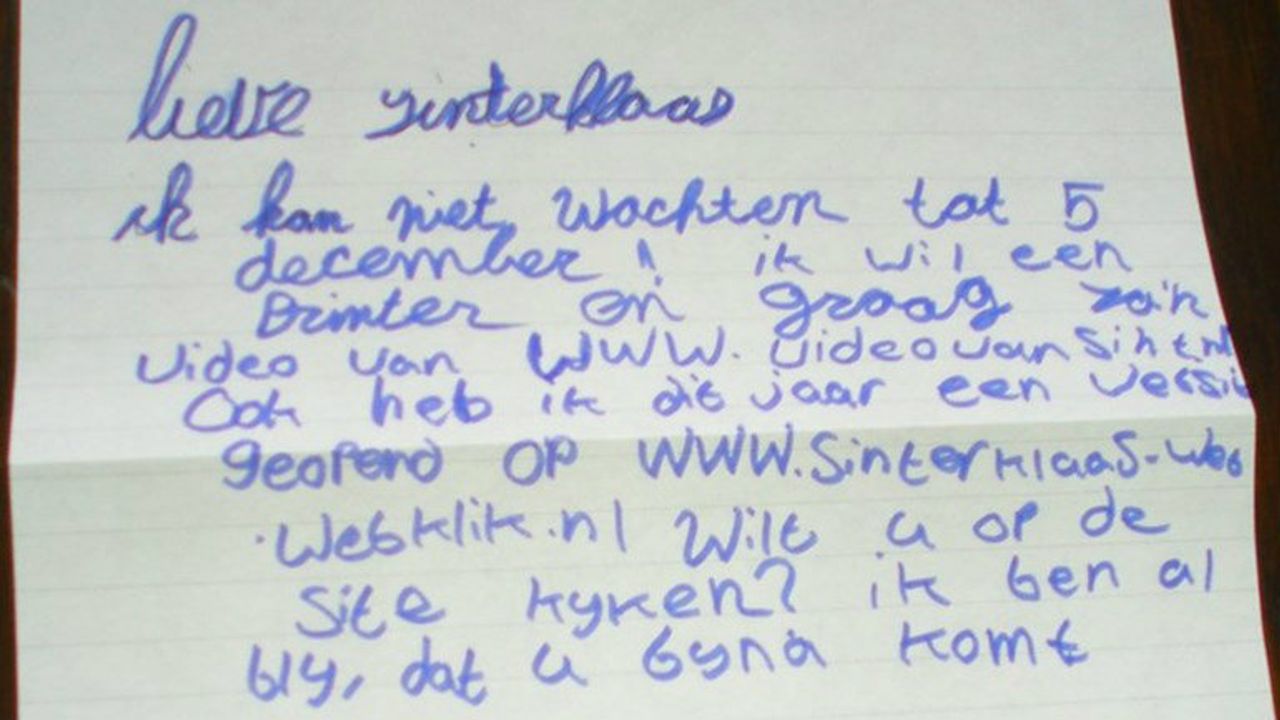 lieve sinterklaas
ik kan niet wachten tot 5
december! ik wil een
printer en graag zo'n
video van www.videovansint.nl
Ook heb ik dit jaar een versie
geopend op www.Sinterklaas-web
.webklik.nl Wilt u op de
site kyken? ik ben al
bly, dat u byna komt